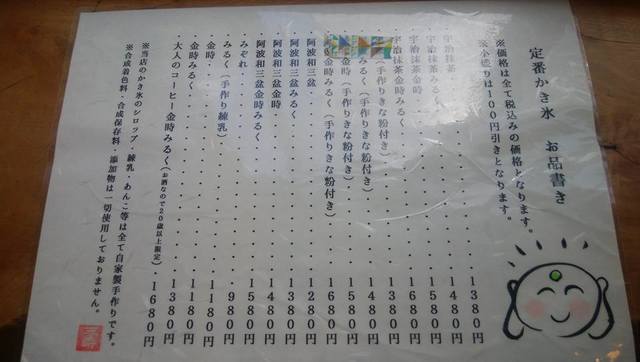 定番かき氷 お品書き
※価格は全て税込みの価格となります。
※小盛りは100円引きとなります。
宇治抹茶 1380円
宇治抹茶みるく 1480円
宇治抹茶金時 1580円
宇治抹茶金時みるく 1680円
(手作りきな粉付き) 1380円
みるく(手作りきな粉付き) 1480円
金時(手作りきな粉付き) 1580円
金時みるく(手作りきな粉付き) 1680円
阿波和三盆 1280円
阿波和三盆みるく 1380円
阿波和三盆金時 1480円
阿波和三盆金時みるく 1580円
みぞれ 980円
みるく(手作り練乳) 1180円
金時 1180円
金時みるく 1380円
大人のコーヒー金時みるく(お酒なので20歳以上限定) 1680円
※当店のかき氷のシロップ・練乳・あんこ等は全て自家製手作りです。
※合成着色料・合成保存料・添加物は一切使用しておりません。